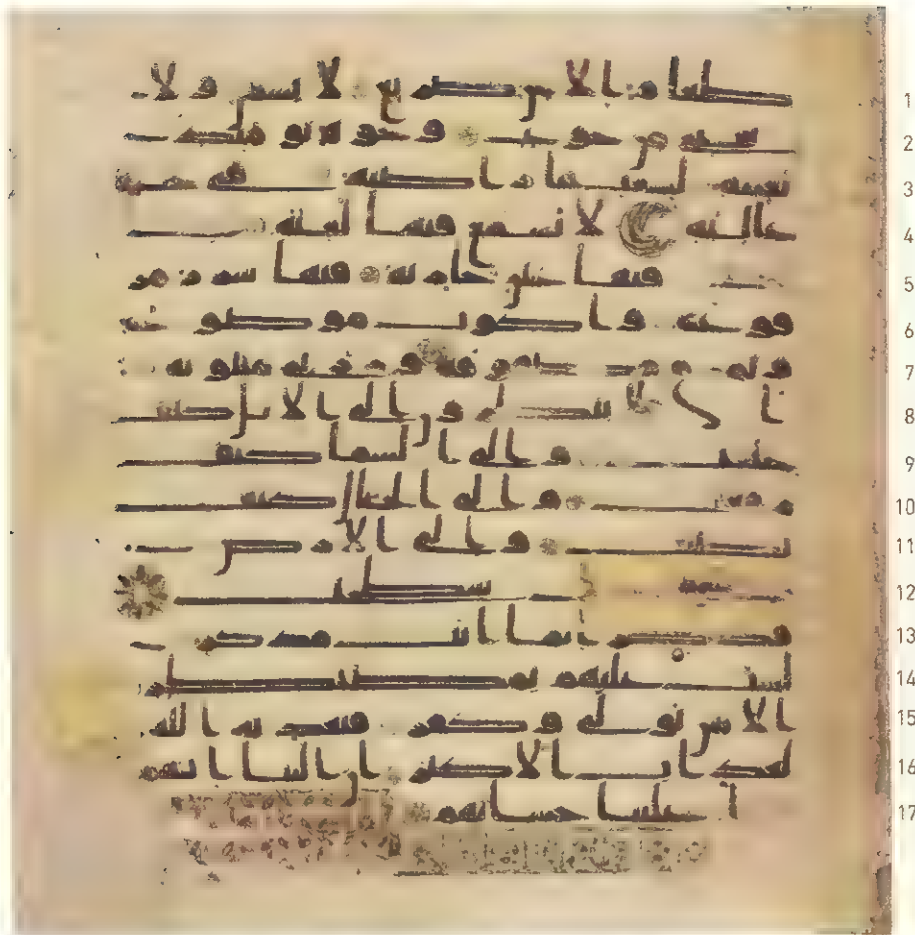 طعام الا من ضريع لا يسمن ولا 1
يغنى من جوع وجوه يومئذ 2
ناعمة لسعيها راضية فى جنة 3
عالية لا تسمع فيها لغية 4
فيها عين جارية فيها سرر مر 5
فوعة واكواب موضوعة و 6
نمارق مصفوفة وزرابى مبثوثة 7
افلا ينظرون الى الابل كيف 8
خلقت والى السما كيف 9
رفعت والى الجبال كيف 10
نصبت والى الارض 11
كيف سطحت 12
فذكر انما انت مذكر 13
لست عليهم بمصيطر 14
الا من تولى وكفر فيعذبه الله 15
العذاب الاكبر ان الينا ايابهم 16
ثم ان علينا حسابهم 17